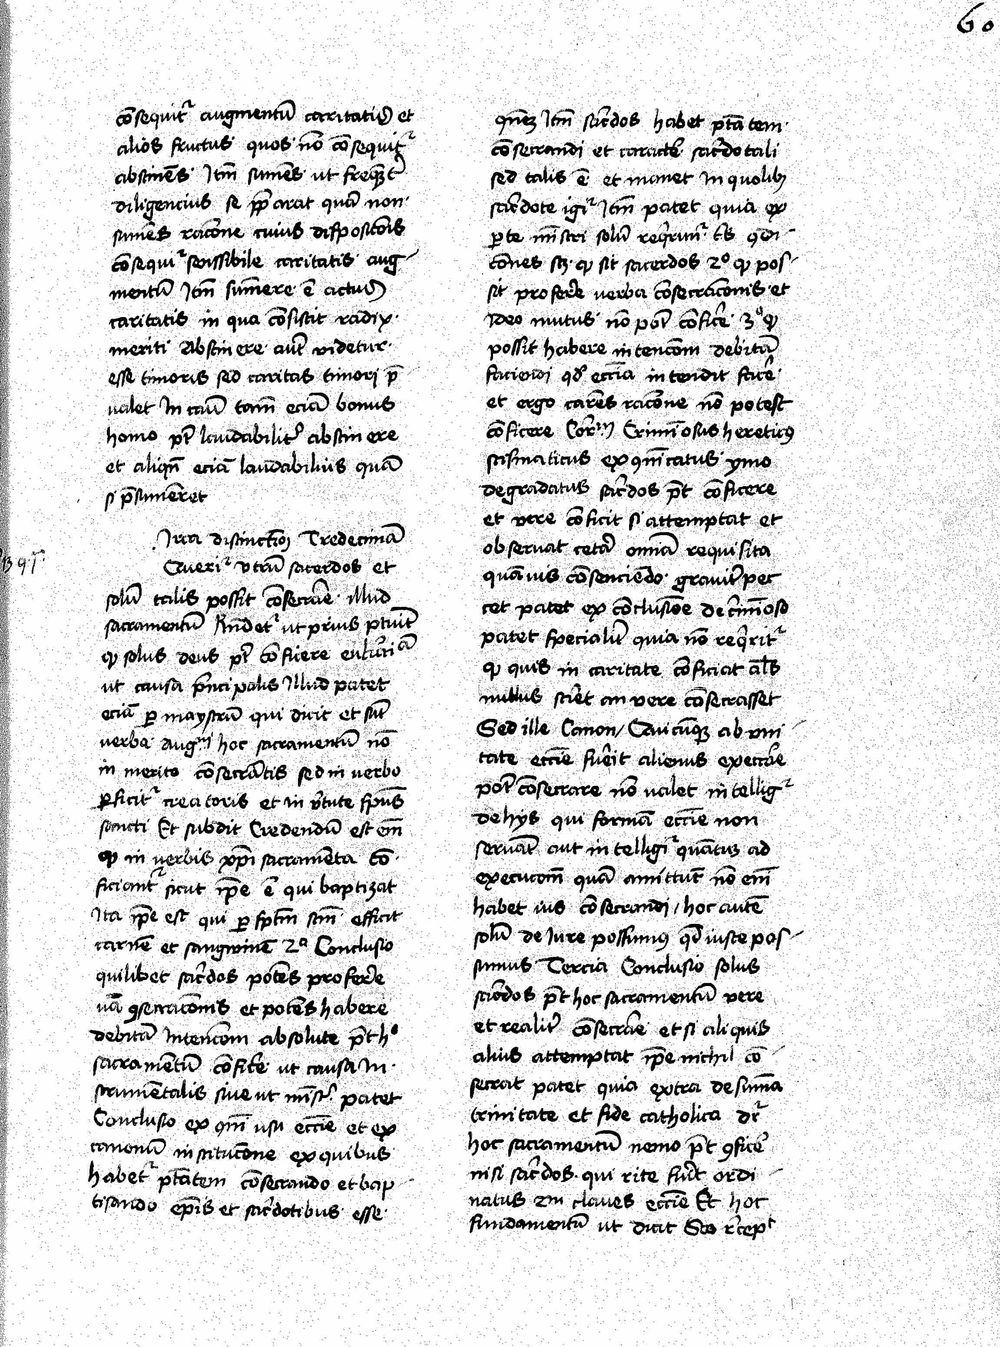 60
consequit᷑ augmentū caritatis et
alios fructus quos nō consequit᷑
abstinēs Itm̄ sumēs ut frequēt᷑
diligencius se p̄parat quā non
sumēs racōne cuius dispositōis
cōsequi᷑ sensibile caritatis aug
mentū Itm̄ sumere ē actus
caritatis in qua cōsistit radix
meriti Abstinere aūt videtur
esse timoris sed caritas timori p̄
ualet In casu tam̄ eciā bonus
homo pt̄ laudabilit᷑ abstinere
et aliqn̄ eciā laudabilius quā
si p̄sumeret
Irca distinctōēȝ Tredecimā
Queri᷑ vtrū sacerdos et
solū talis possit cōsecrare illud
sacramentū Rn̄det᷑ ut prius
ꝙ solus deus pt̄ cōficere eukaristiā
ut causa p̄ncipalis Illud patet
eciā ꝑ maystrū qui dicit et sūt
verba augᵐⁱ hoc sacramentū nō
in merito cōsecrātis sed in verbo
ꝑficit᷑ creatoris et in v̄tute sp̄us
sancti Et subdit Credendū est em̄
ꝙ in verbis xp̄i sacramēta cō
ficiant᷑ sicut ip̄e ē qui baptizat
Ita ip̄e est qui ꝑ sp̄m scm̄ efficit
carnē et sangwinē 2ᵃ Conclusio
quilibet sac̄dos potēs proferre
uā ꝯsecracōnis et potēs habere
debitā Intencōm absolute pt̄ hᵒ
sacramētū cōficere ut causa In
strumētalis siue ut mīst᷑ patet
Conclusio ex ꝯm̄i usu ecc̄ie et ex
canonū institucōne ex quibus
habet᷑ pt̄atem cōsecrando et bap
tisando ep̄is et sac̄dotibus esse
Itm̄ sac̄dos habet pt̄atem
cōsecrandi et caract̄e sac̄dotali
sed talis ē et manet In quolibȝ
sac̄dote igi᷑ Itm̄ patet quia ex
ꝑte mīstri solū reqrun᷑ t̄s ꝯdi
cōnes sȝ ꝙ sit sacerdos 2ᵒ ꝙ pos
sit proferre verba cōsecracōnis et
Ideo mutus nō pot̄ cōficē 3ᵒ ꝙ
possit habere intencōm debitā
faciendi qd̄ ecc̄ia intendit facē
et ergo carēs racōne nō potest
cōficere Corᵐ Criminosus hereticꝯ
scismaticus exꝯm̄icatus ymo
degradatus sac̄dos pt̄ cōficere
et vere cōficit si attemptat et
obseruat cetā omīa requisita
quāuis cōsenciēdo grauit᷑ pec
cet patet ex cōclusiōe de c̄mīoso
patet specialit᷑ quia nō reqrit᷑
ꝙ quis in caritate cōficiat als̄
nullus sciret an vere cōsecrasset
Sed ille Canon / Quicūqȝ ab vni
tate ecc̄ie fuerit alienus execrāe
pot̄ cōsecrare nō ualet intellig᷑
de hys qui formā ecc̄ie non
seruāt aut intelligi᷑ quātuȝ ad
execucōm quā amittūt nō em̄
habet ius cōsecrandi / hoc autē
solū de Iure possumꝯ qd̄ iuste pos
sumus Tercia Conclusio solus
sac̄dos pt̄ hoc sacramentū vere
et realit᷑ cōsecrāe et si aliquis
alius attemptat ip̄e nichil cō
secrat patet quia extra de sūma
trinitate et fide catholica dr̄
hoc sacramentū nemo pt̄ ꝯficē
nisi sac̄dos qui rite fūit ordi
natus 2m̄ claues ecc̄ie Et hoc
fundamentū ut dicit Sco